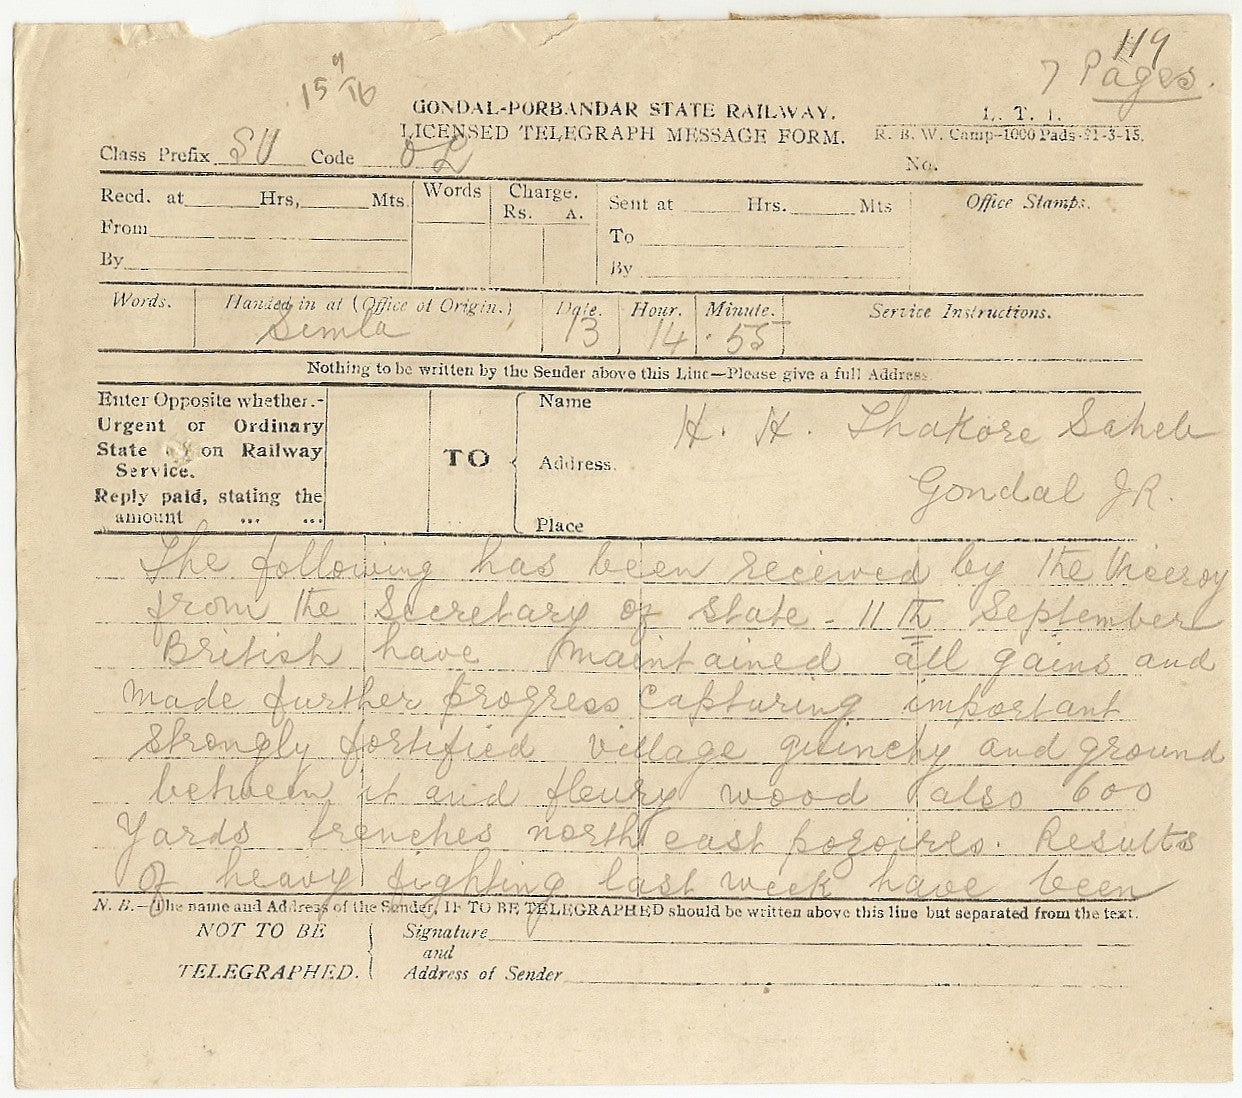 119
7 Pages.
15 9/16
GONDAL-PORBANDAR STATE RAILWAY.
LICENSED TELEGRAPH MESSAGE FORM.
L. T. 1.
R. B. W. Camp-1000 Pads-21-3-15.
Class Prefix SU Code OL
No.
Recd. at Hrs, Mts.
From
By
Words
Charge.
Rs. A.
Sent at Hrs. Mts
To
By
Office Stamps.
Words. Handed in at (Office of Origin.) Date. Hour. Minute. Service Instructions.
Simla 13 14 . 55
Nothing to be written by the Sender above this Line—Please give a full Address.
Enter Opposite whether.-
Urgent or Ordinary
State on Railway
Service.
Reply paid, stating the
amount ... ...
TO
Name H. H. Thakore Saheb
Address. Gondal JR.
Place
The following has been received by the Viceroy
from the Secretary of State - 11th September
British have maintained all gains and
made further progress capturing important
strongly fortified village guinchy and ground
between it and fleury wood also 600
Yards trenches north east pozoires. Results
Of heavy fighting last week have been
N. B.—The name and Address of the Sender, IF TO BE TELEGRAPHED should be written above this line but separated from the text.
NOT TO BE
TELEGRAPHED.
Signature
and
Address of Sender